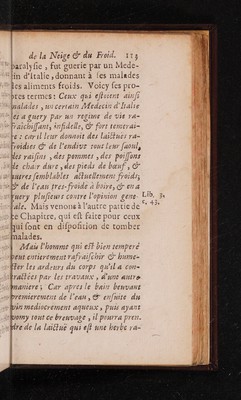 de la Neige & du Froid. 113
paralysie, fut guerie par un Mede-
cin d'Italie, donnant à ses malades
les aliments froids. Voicy ses pro-
pres termes: Ceux qui estoient ainsi
malades, un certain Medecin d'Italie
les a guery par un regime de vie ra-
fraichissant, infidelle, & fort temerai-
re: car il leur donnoit des laictuës ra-
froidies & de l'endive tout leur saoul,
des raisins, des pommes, des poissons
de chair dure, des pieds de bœuf, &
autres semblables actuellement froids,
& de l'eau tres-froide à boire, & en a
guery plusieurs contre l'opinion gene-
rale. Mais venons à l'autre partie de
ce Chapitre, qui est faite pour ceux
qui sont en disposition de tomber
malades.
Lib. 3.
c. 43.
Mais l'homme qui est bien temperé
peut entierement rafraischir & hume-
cter les ardeurs du corps qu'il a con-
tractées par les travaux, d'une autre
maniere. Car apres le bain beuvant
premierement de l'eau, & ensuite du
vin mediocrement aqueux, puis ayant
vomy tout ce breuvage, il pourra pren-
dre de la laictuë qui est une herbe ra-